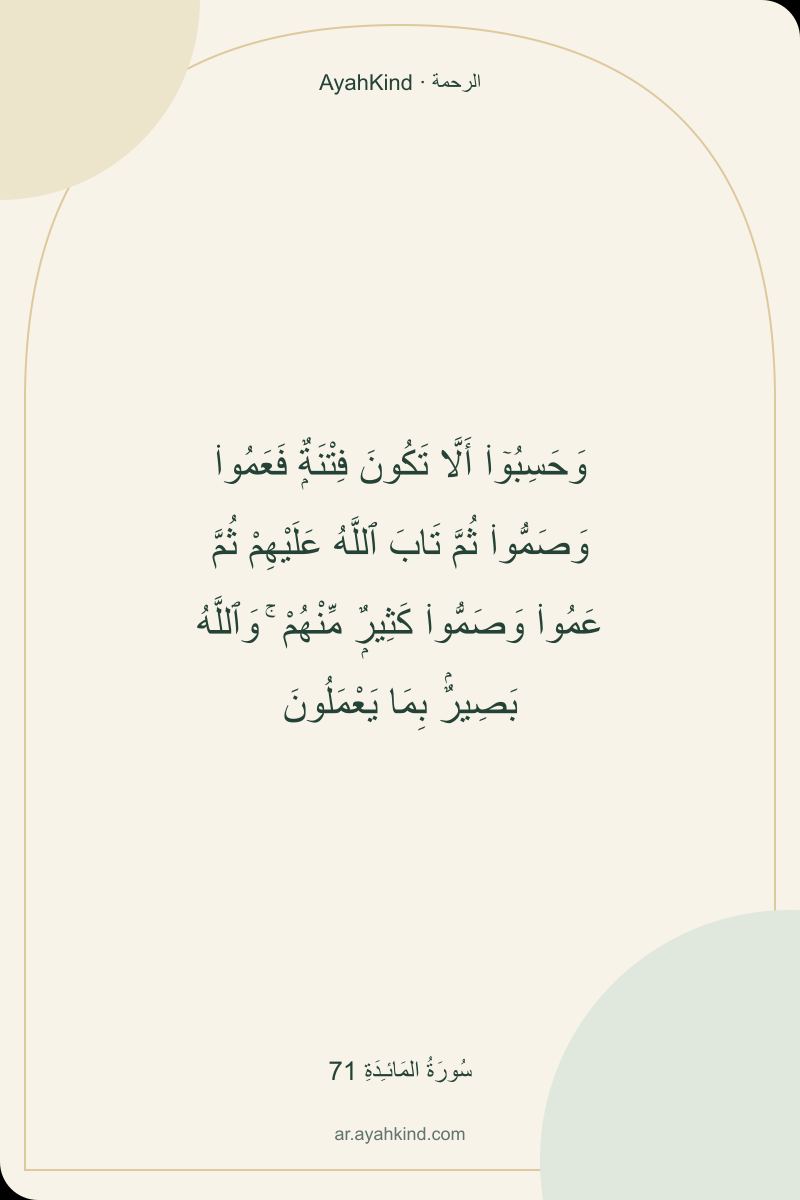 AyahKind · الرحمة
وَحَسِبُوٓا۟ أَلَّا تَكُونَ فِتْنَةٌۭ فَعَمُوا۟
وَصَمُّوا۟ ثُمَّ تَابَ ٱللَّهُ عَلَيْهِمْ ثُمَّ
عَمُوا۟ وَصَمُّوا۟ كَثِيرٌۭ مِّنْهُمْ ۚ وَٱللَّهُ
بَصِيرٌۢ بِمَا يَعْمَلُونَ
سُورَةُ المَائـِدَةِ 71
ar.ayahkind.com